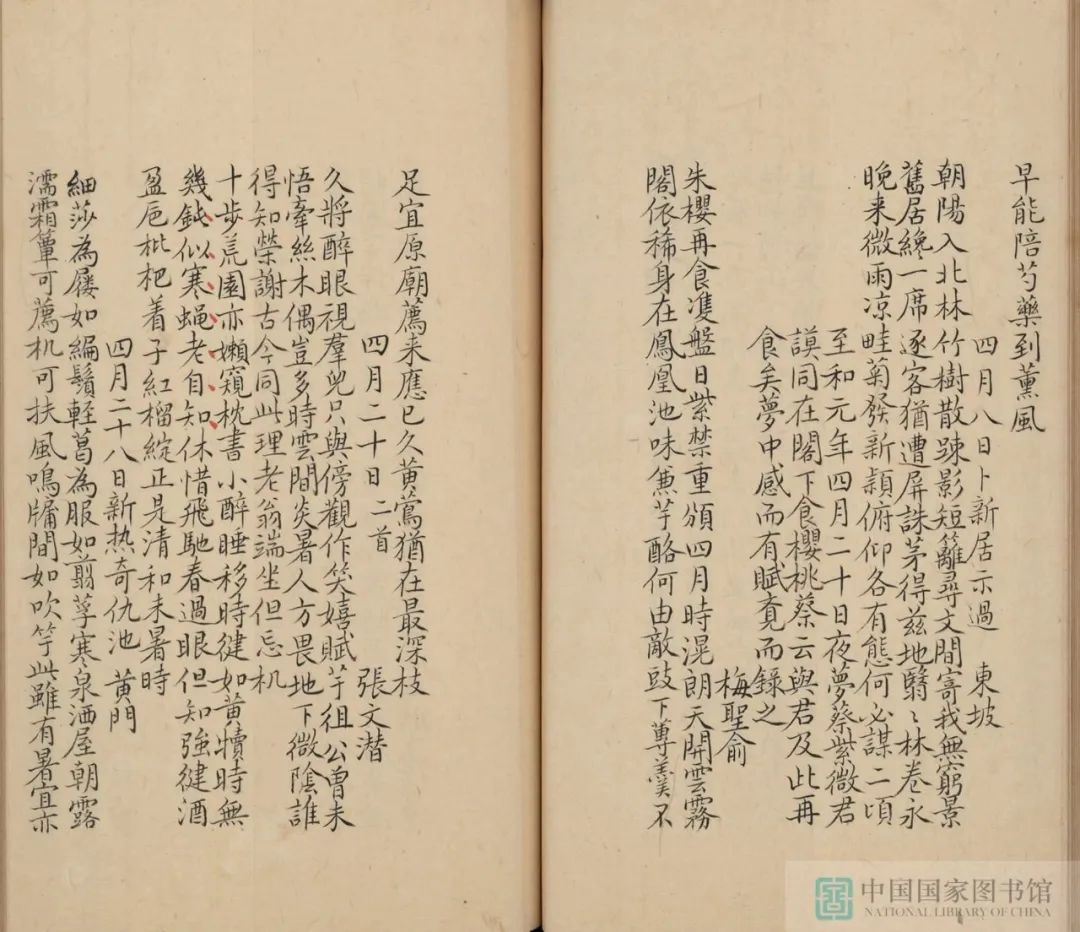 早能陪芍藥到薰風
四月八日卜新居示過 東坡
朝陽入北林竹樹散踈影短籬尋丈間寄我無窮景
舊居纔一席逐客猶遭屏誅茅得兹地翳〻林卷永
晚来微雨凉畦菊發新穎俯仰各有態何必謀二頃
至和元年四月二十日夜夢蔡紫微君
謨同在閣下食櫻桃蔡云與君及此再
食矣夢中感而有賦賷而錄之
梅聖俞
朱櫻再食雙盤日紫禁重頒四月時滉朗天開雲霧
閣依稀身在鳳凰池味兼芋酪何由敵豉下蓴羹不
足宜原廟薦来應已久黄鶯猶在最深枝
四月二十日二首 張文潜
久將醉眼視羣兒只與傍觀作笑嬉賦芋徂公曾未
悟牽絲木偶豈多時雲間炎暑人方畏地下微陰誰
得知榮謝古今同此理老翁端坐但忘机
十步荒園亦嬾窺枕書小醉睡移時健如黄犢時無
幾鈍似寒蝇老自知休惜飛馳春過眼但知強健酒
盈巵枇杷着子紅榴綻正是清和未暑時
四月二十八日新热奇仇池 黄門
細莎為屨如編鬚輕葛為服如翦莩寒泉洒屋朝露
濡霜簟可薦机可扶風鳴牖間如吹竽此雖有暑宜亦
中国国家图书馆
NATIONAL LIBRARY OF CHINA